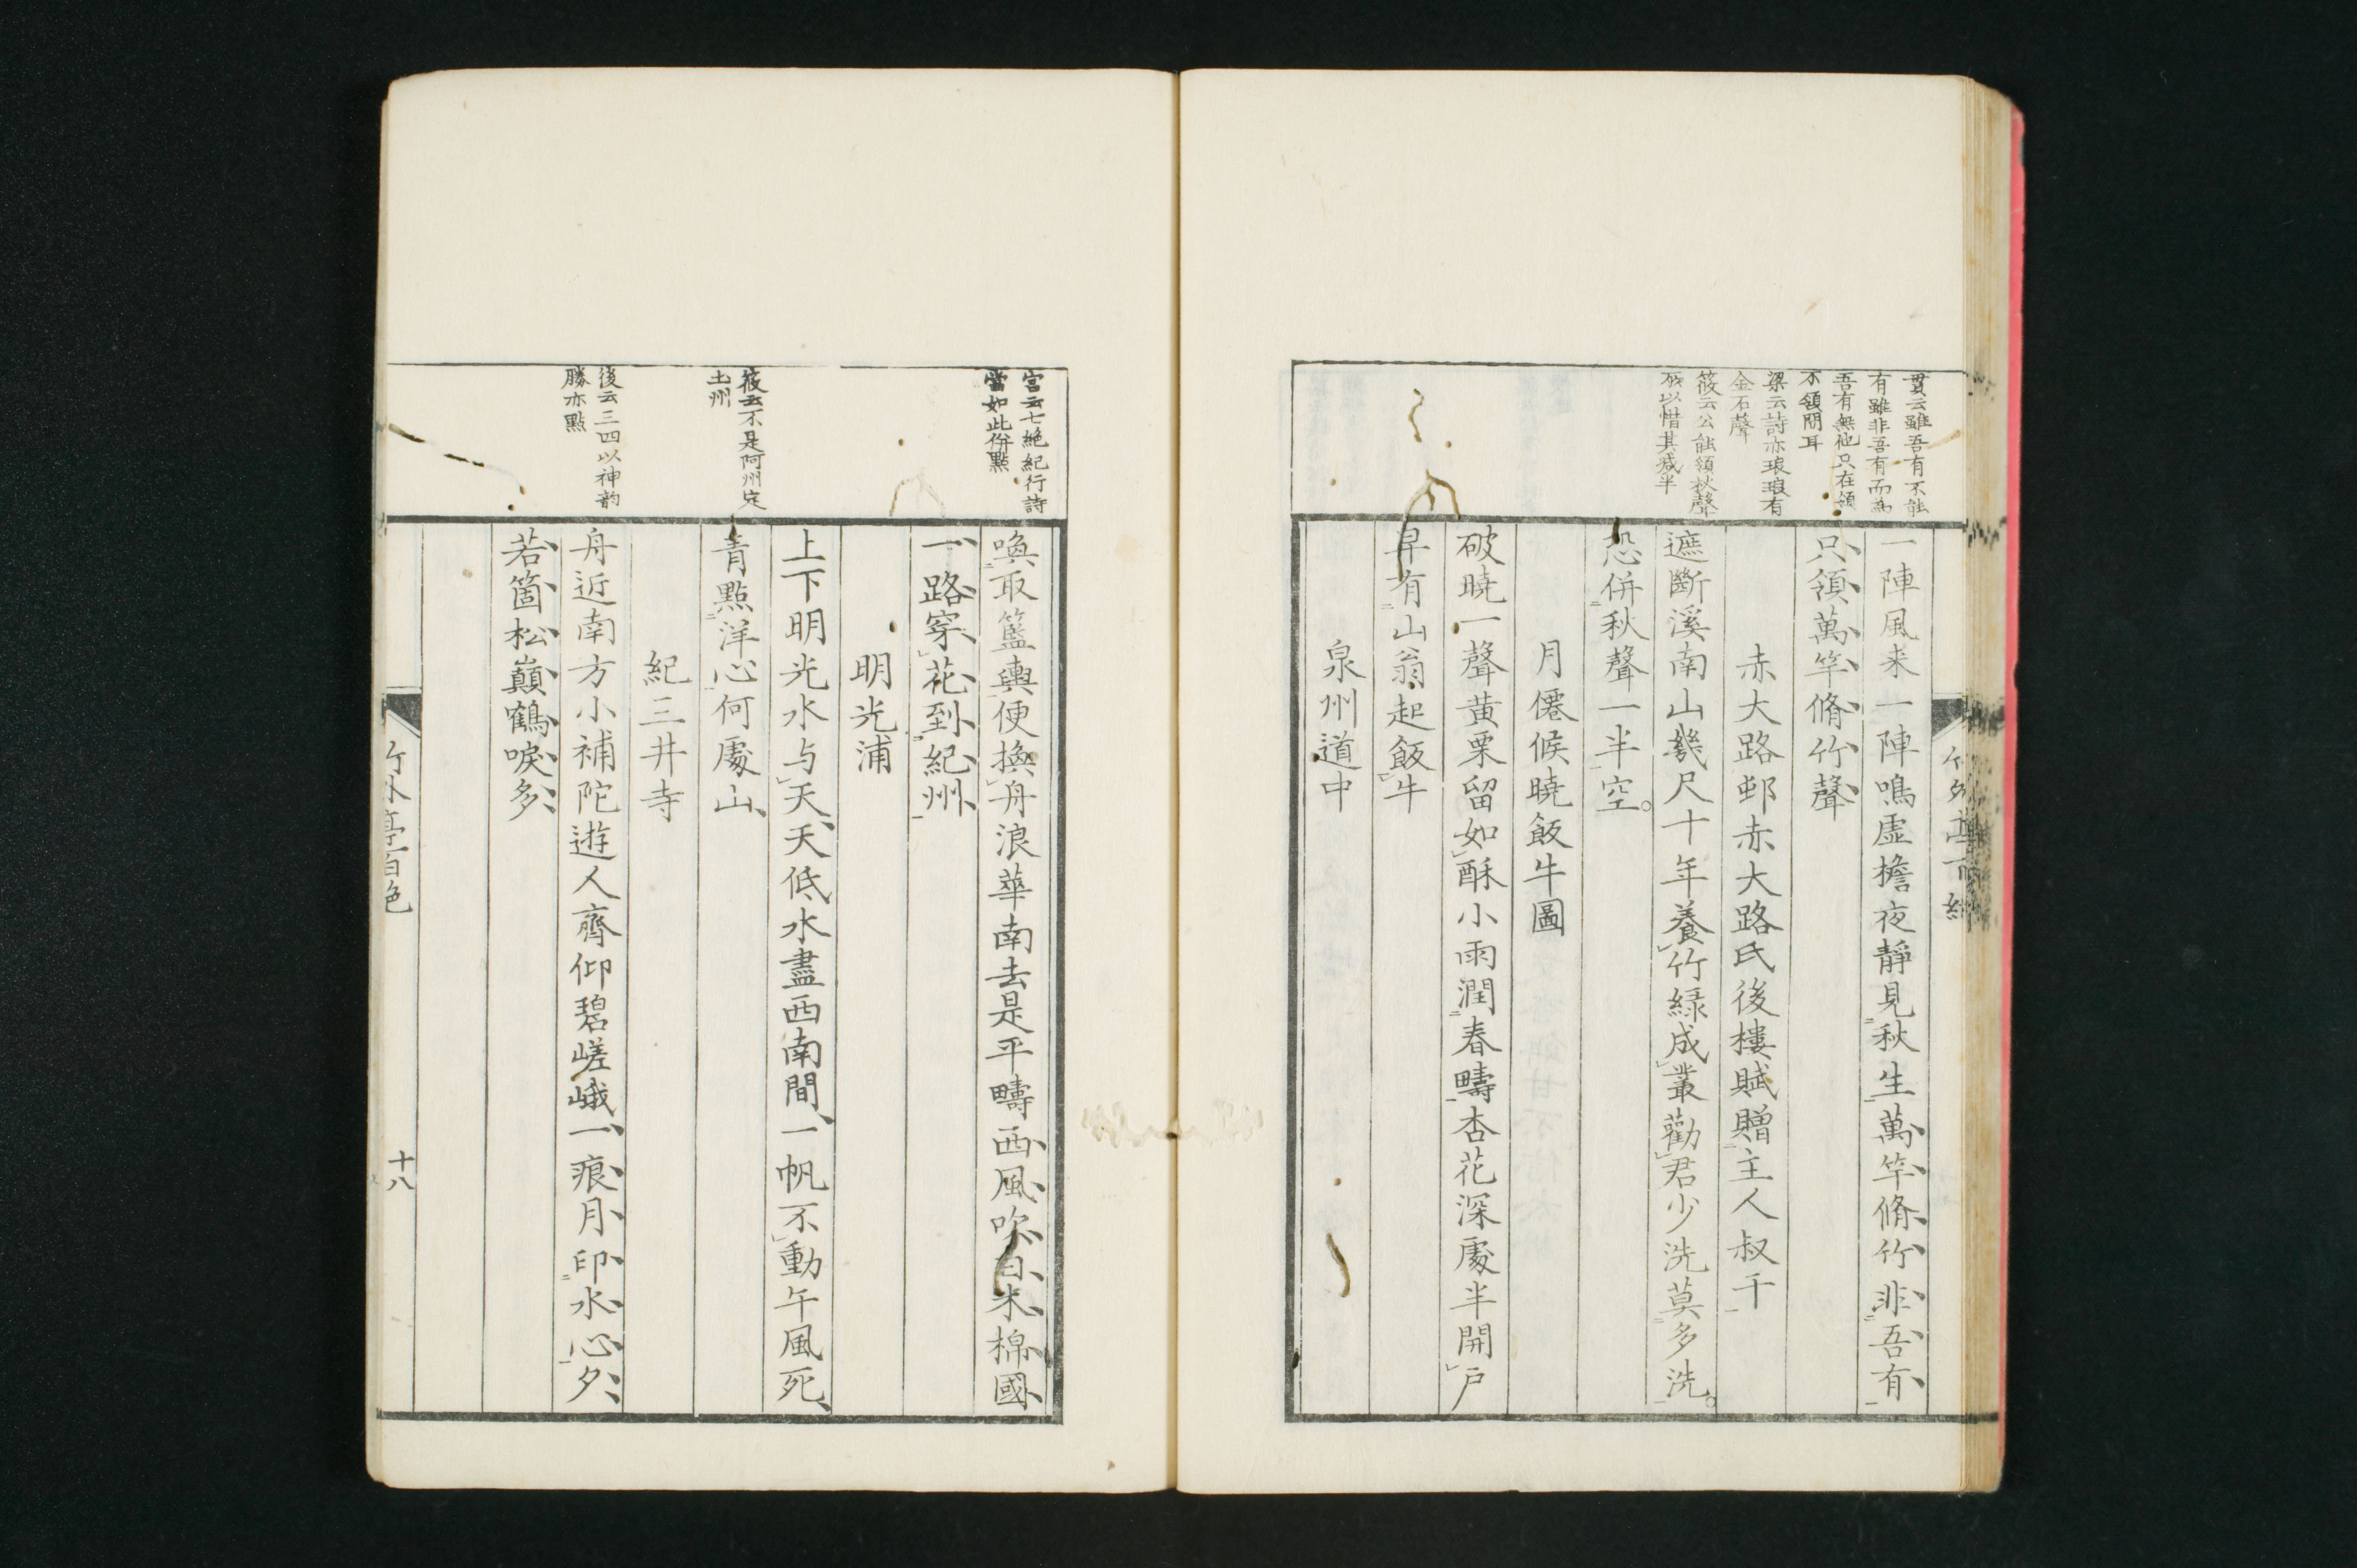 貫云雖吾有不能
有雖非吾有而為
吾有無他只在領
不領間耳
梁云詩亦琅琅有
金石聲
筱云公能領秋聲
所以惜其減半
一陣風来一陣鳴虛檐夜靜見秋生萬竿脩竹非吾有
只領萬竿脩竹聲
赤大路邨赤大路氏後樓賦贈主人叔千
遮斷溪南山幾尺十年養竹緑成叢勸君少洗莫多洗
恐併秋聲一半空
月僊候曉飯牛圖
破曉一聲黃栗留如酥小雨潤春疇杏花深處半開戶
早有山翁起飯牛
泉州道中
宮云七絶紀行詩
當如此併點
喚取籃輿便換舟浪華南去是平疇西風吹白木棉國
一路穿花到紀州
明光浦
筱云不是阿州定
土州
上下明光水与天天低水盡西南間一帆不動午風死
青點洋心何處山
紀三井寺
後云三四以神韵
勝亦點
舟近南方小補陀遊人齊仰碧嵯峨一痕月印水心夕
若箇松巔鶴唳多
竹外亭百絶
十八